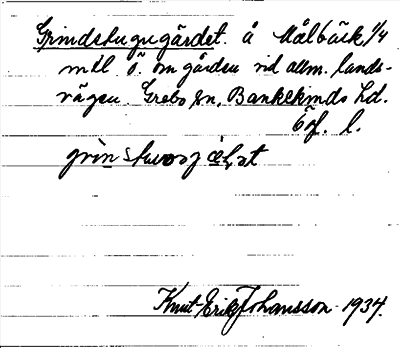 Grindstugugärdet. å Målbäck 1/4
mil ö. om gården vid allm. lands-
vägen. Grebo sn, Bankekinds hd.
Ög. l.
Knut-Erik Johansson 1934.